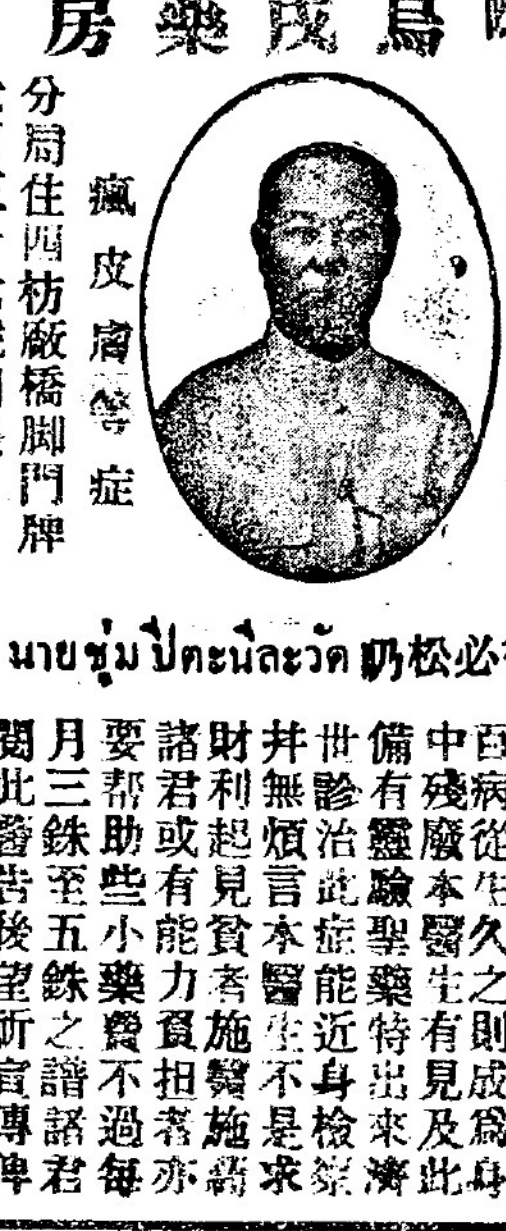 鳥茂藥房
瘋皮膚等症
分局住四枋廠橋脚門牌
นายชุ่ม ปีตะนีละวัต 乃松必
百病從生久之則成爲身
中殘廢本醫生有見及此
備有靈驗聖藥特出來濟
世診治此症能近身檢察
並無煩言本醫生不是求
財利起見貧者施醫施葯
諸君或有能力負担者亦
要帮助些小藥費不過每
月三銖至五銖之譜諸君
閱此醫告後望祈宣傳俾